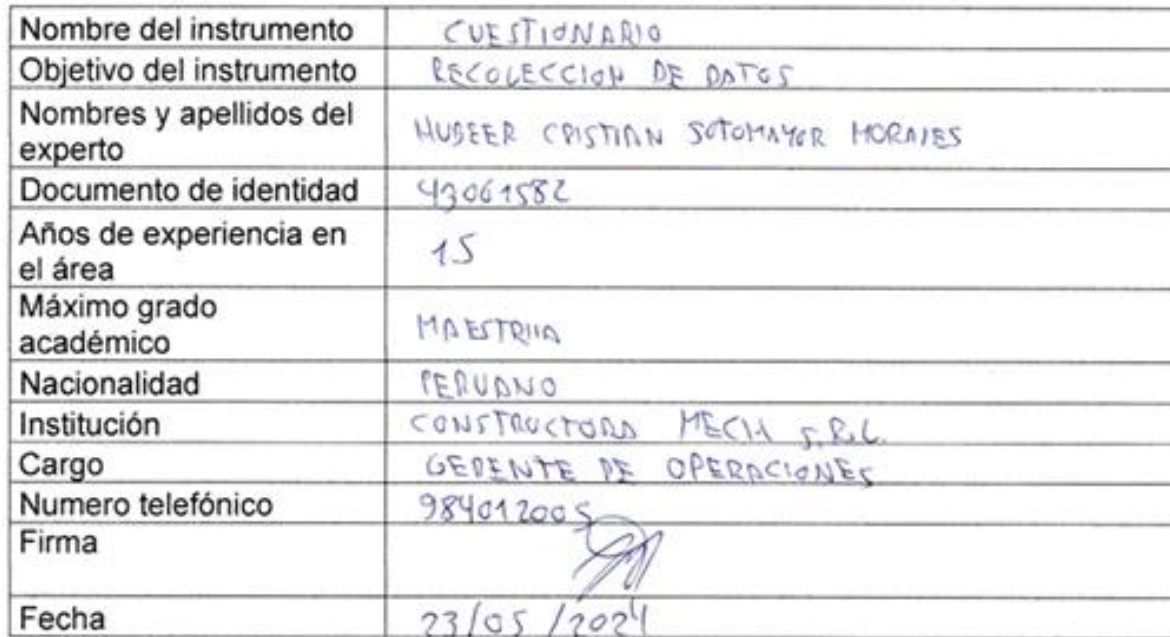 Nombre del instrumento CUESTIONARIO
Objetivo del instrumento RECOLECCION DE DATOS
Nombres y apellidos del
experto CRISTIAN SOTOMAYOR MORALES
Documento de identidad 43061582
Años de experiencia en
el área 15
Máximo grado
académico MAESTRIA
Nacionalidad PERUANO
Institución CONSTRUCTORA S.R.L.
Cargo GERENTE DE OPERACIONES
Numero telefónico 984012005
Firma
Fecha 23/05/2024